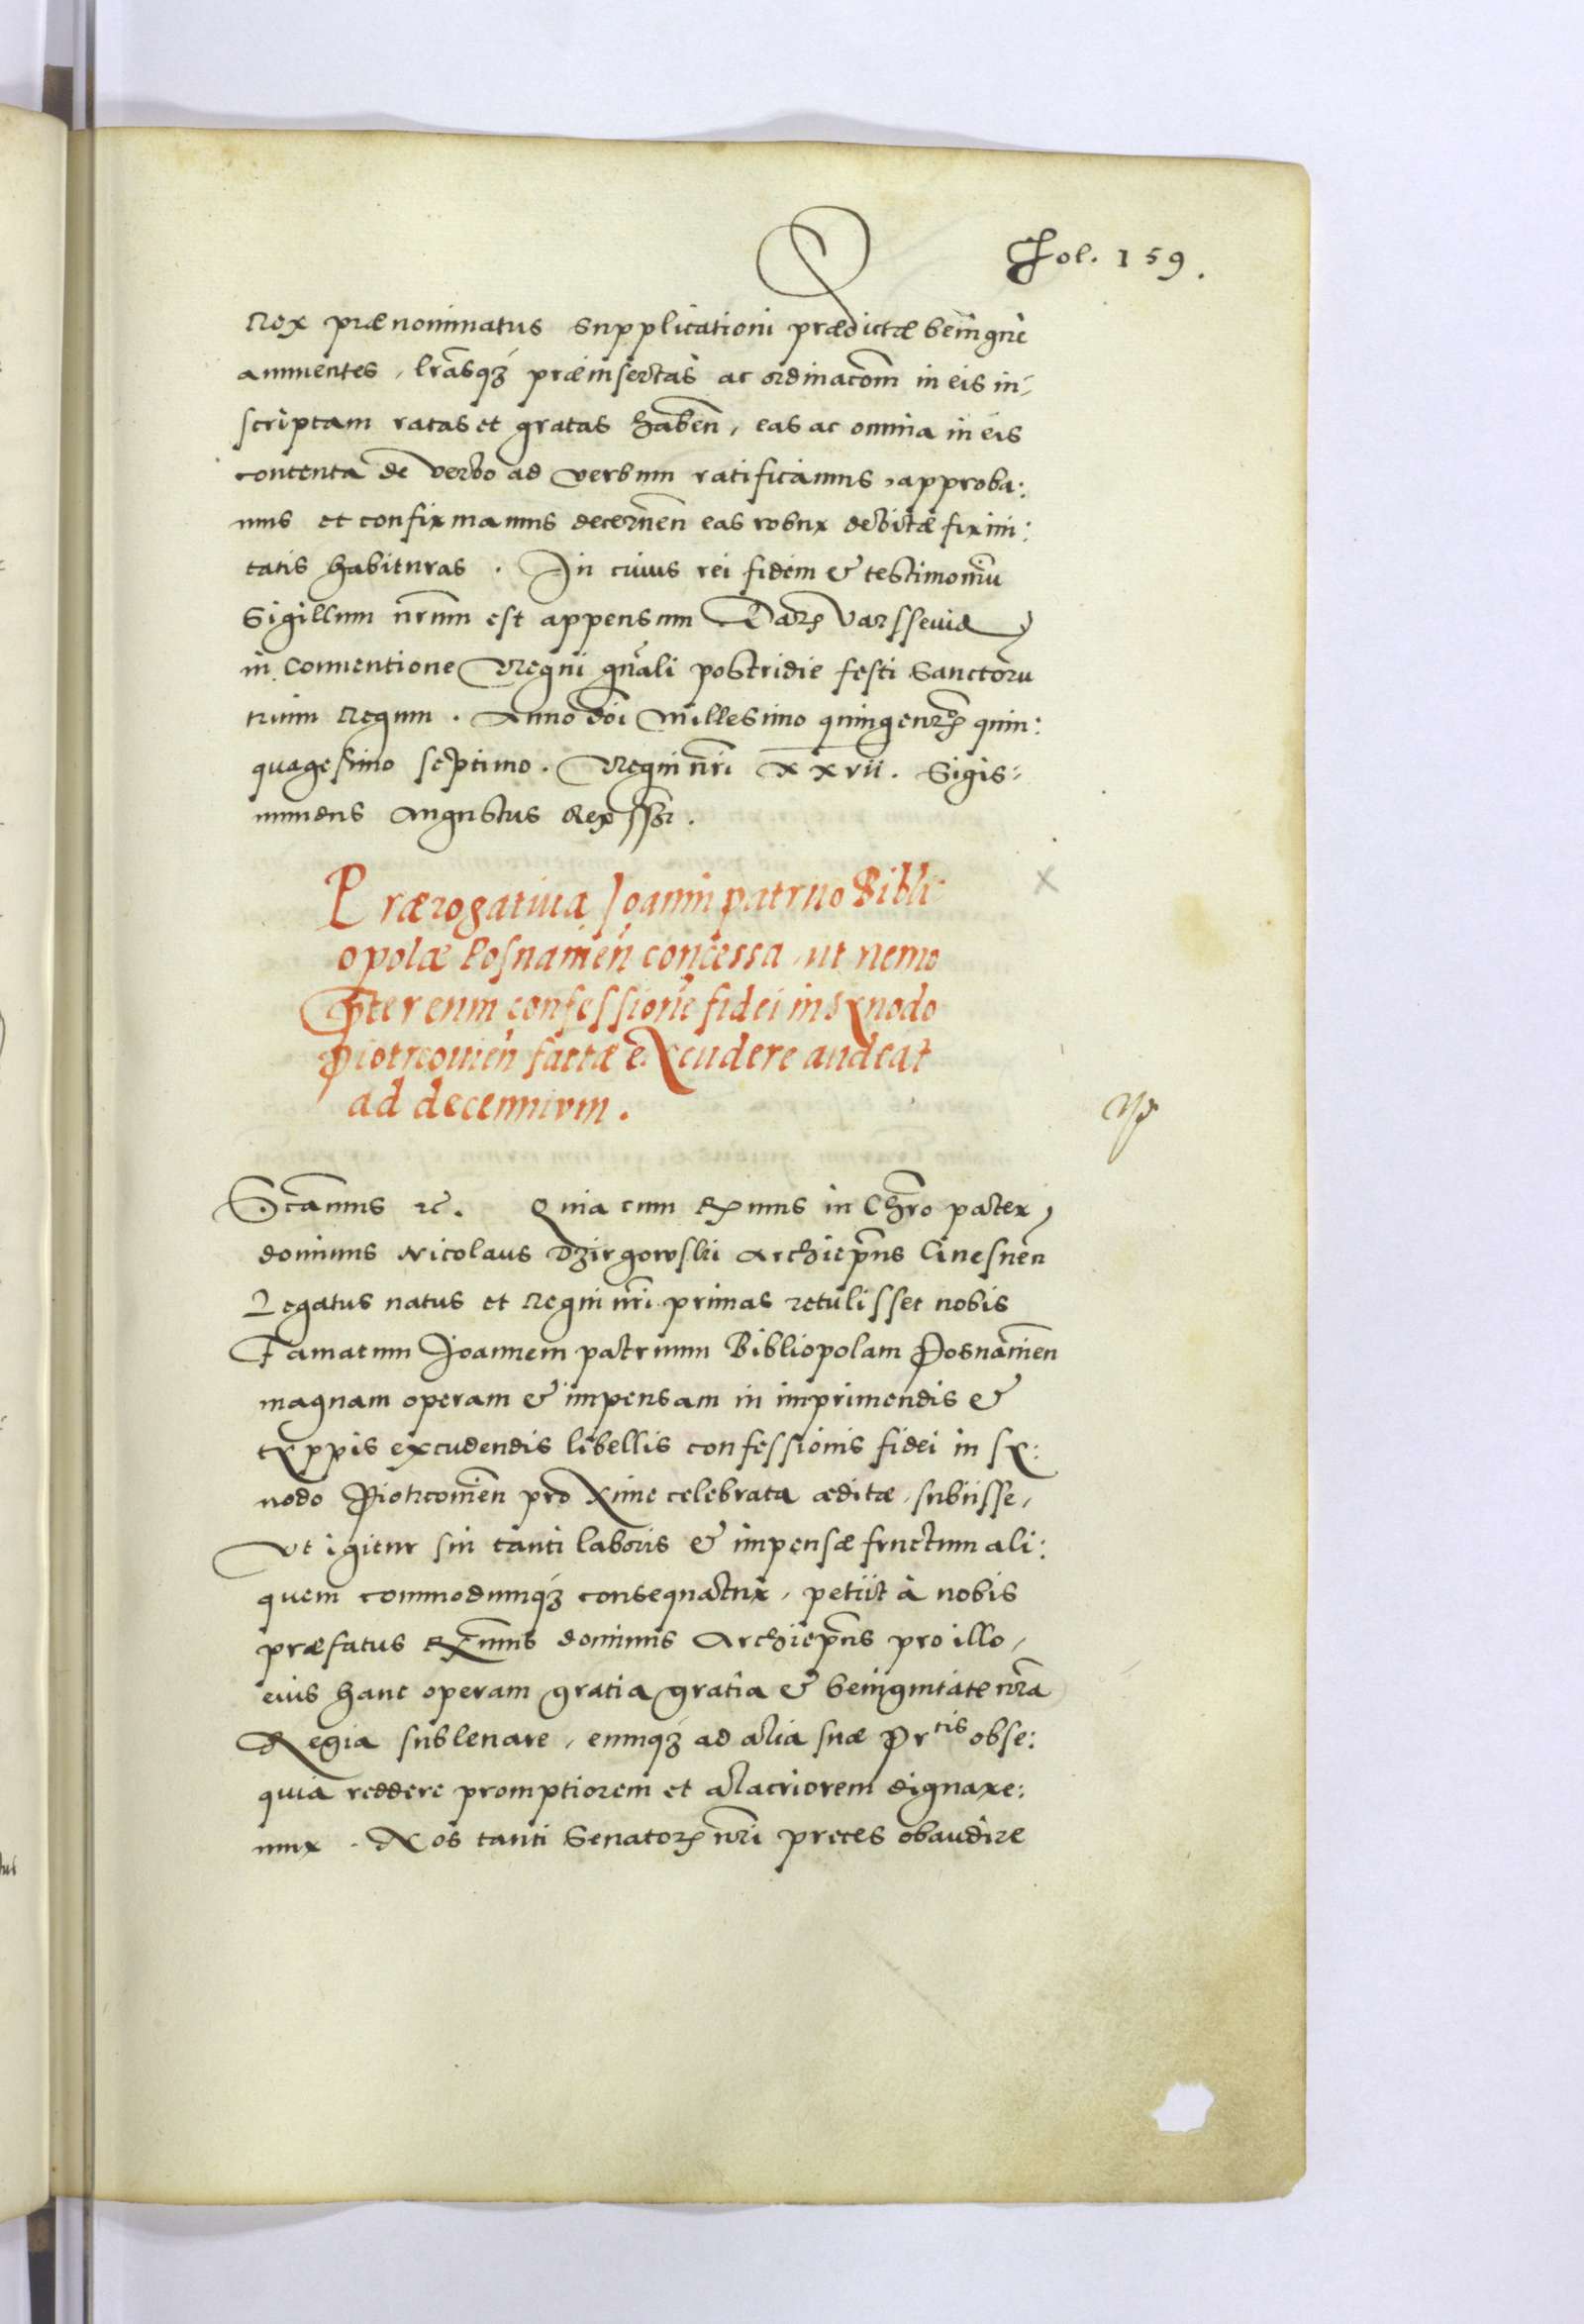 Fol. 159.
Rex prænominatus supplicationi prædictæ benigne
annuentes, lrãsq₃ præinsertas ac ordinacõm in eis in-
scriptam ratas et gratas habeñ, eas ac omnia in eis
contenta de verbo ad verbum ratificamus, approba:
mus et confirmamus decerneñ eas robur debitæ firmi:
tatis habituras. In cuius rei fidem & testimoniũ
Sigillum nrũm est appensum Datꝭ Varsseuiæ
in Conuentione Regni gnãli postridie festi Sanctorũ
trium Regum. Anno dõi Millesimo quingentꝭ quin:
quagesimo septimo. Regni nrĩ xxvii. Sigis:
mundus Augustus Rex sszt.
Prærogatiua Joanni patruo Bibli-
opolæ Posnanieñ concessa, ut nemo
p̃ter eum confessione fidei in Synodo
piotrcouieñ factæ excudere audeat
ad decennium.
Scãmus ꝛc. Quia cum Rx̃mus in Chrõ pater
dominus Nicolaus Dzirgowski Archiep̃us Gnesneñ
Legatus natus et Regni nrĩ primas retulisset nobis
Famatum Joannem patruum Bibliopolam Posnanieñ
magnam operam & impensam in imprimendis &
typpis excudendis libellis confessionis fidei in sy:
nodo Piotrcouieñ proxime celebrata æditæ, subiisse,
Vt igitur sui tanti laboris & impensæ fructum ali:
quem commodumq₃ consequatur, petiit à nobis
præfatus Rx̃mus dominus Archiep̃us pro illo,
eius hanc operam gratia gratia & benignitate nrã
Regia subleuare, eumq₃ ad alia suæ Prtis obse:
quia reddere promptiorem et alacriorem dignare:
mur. Nos tanti Senatorꝭ nrĩ preces obaudire